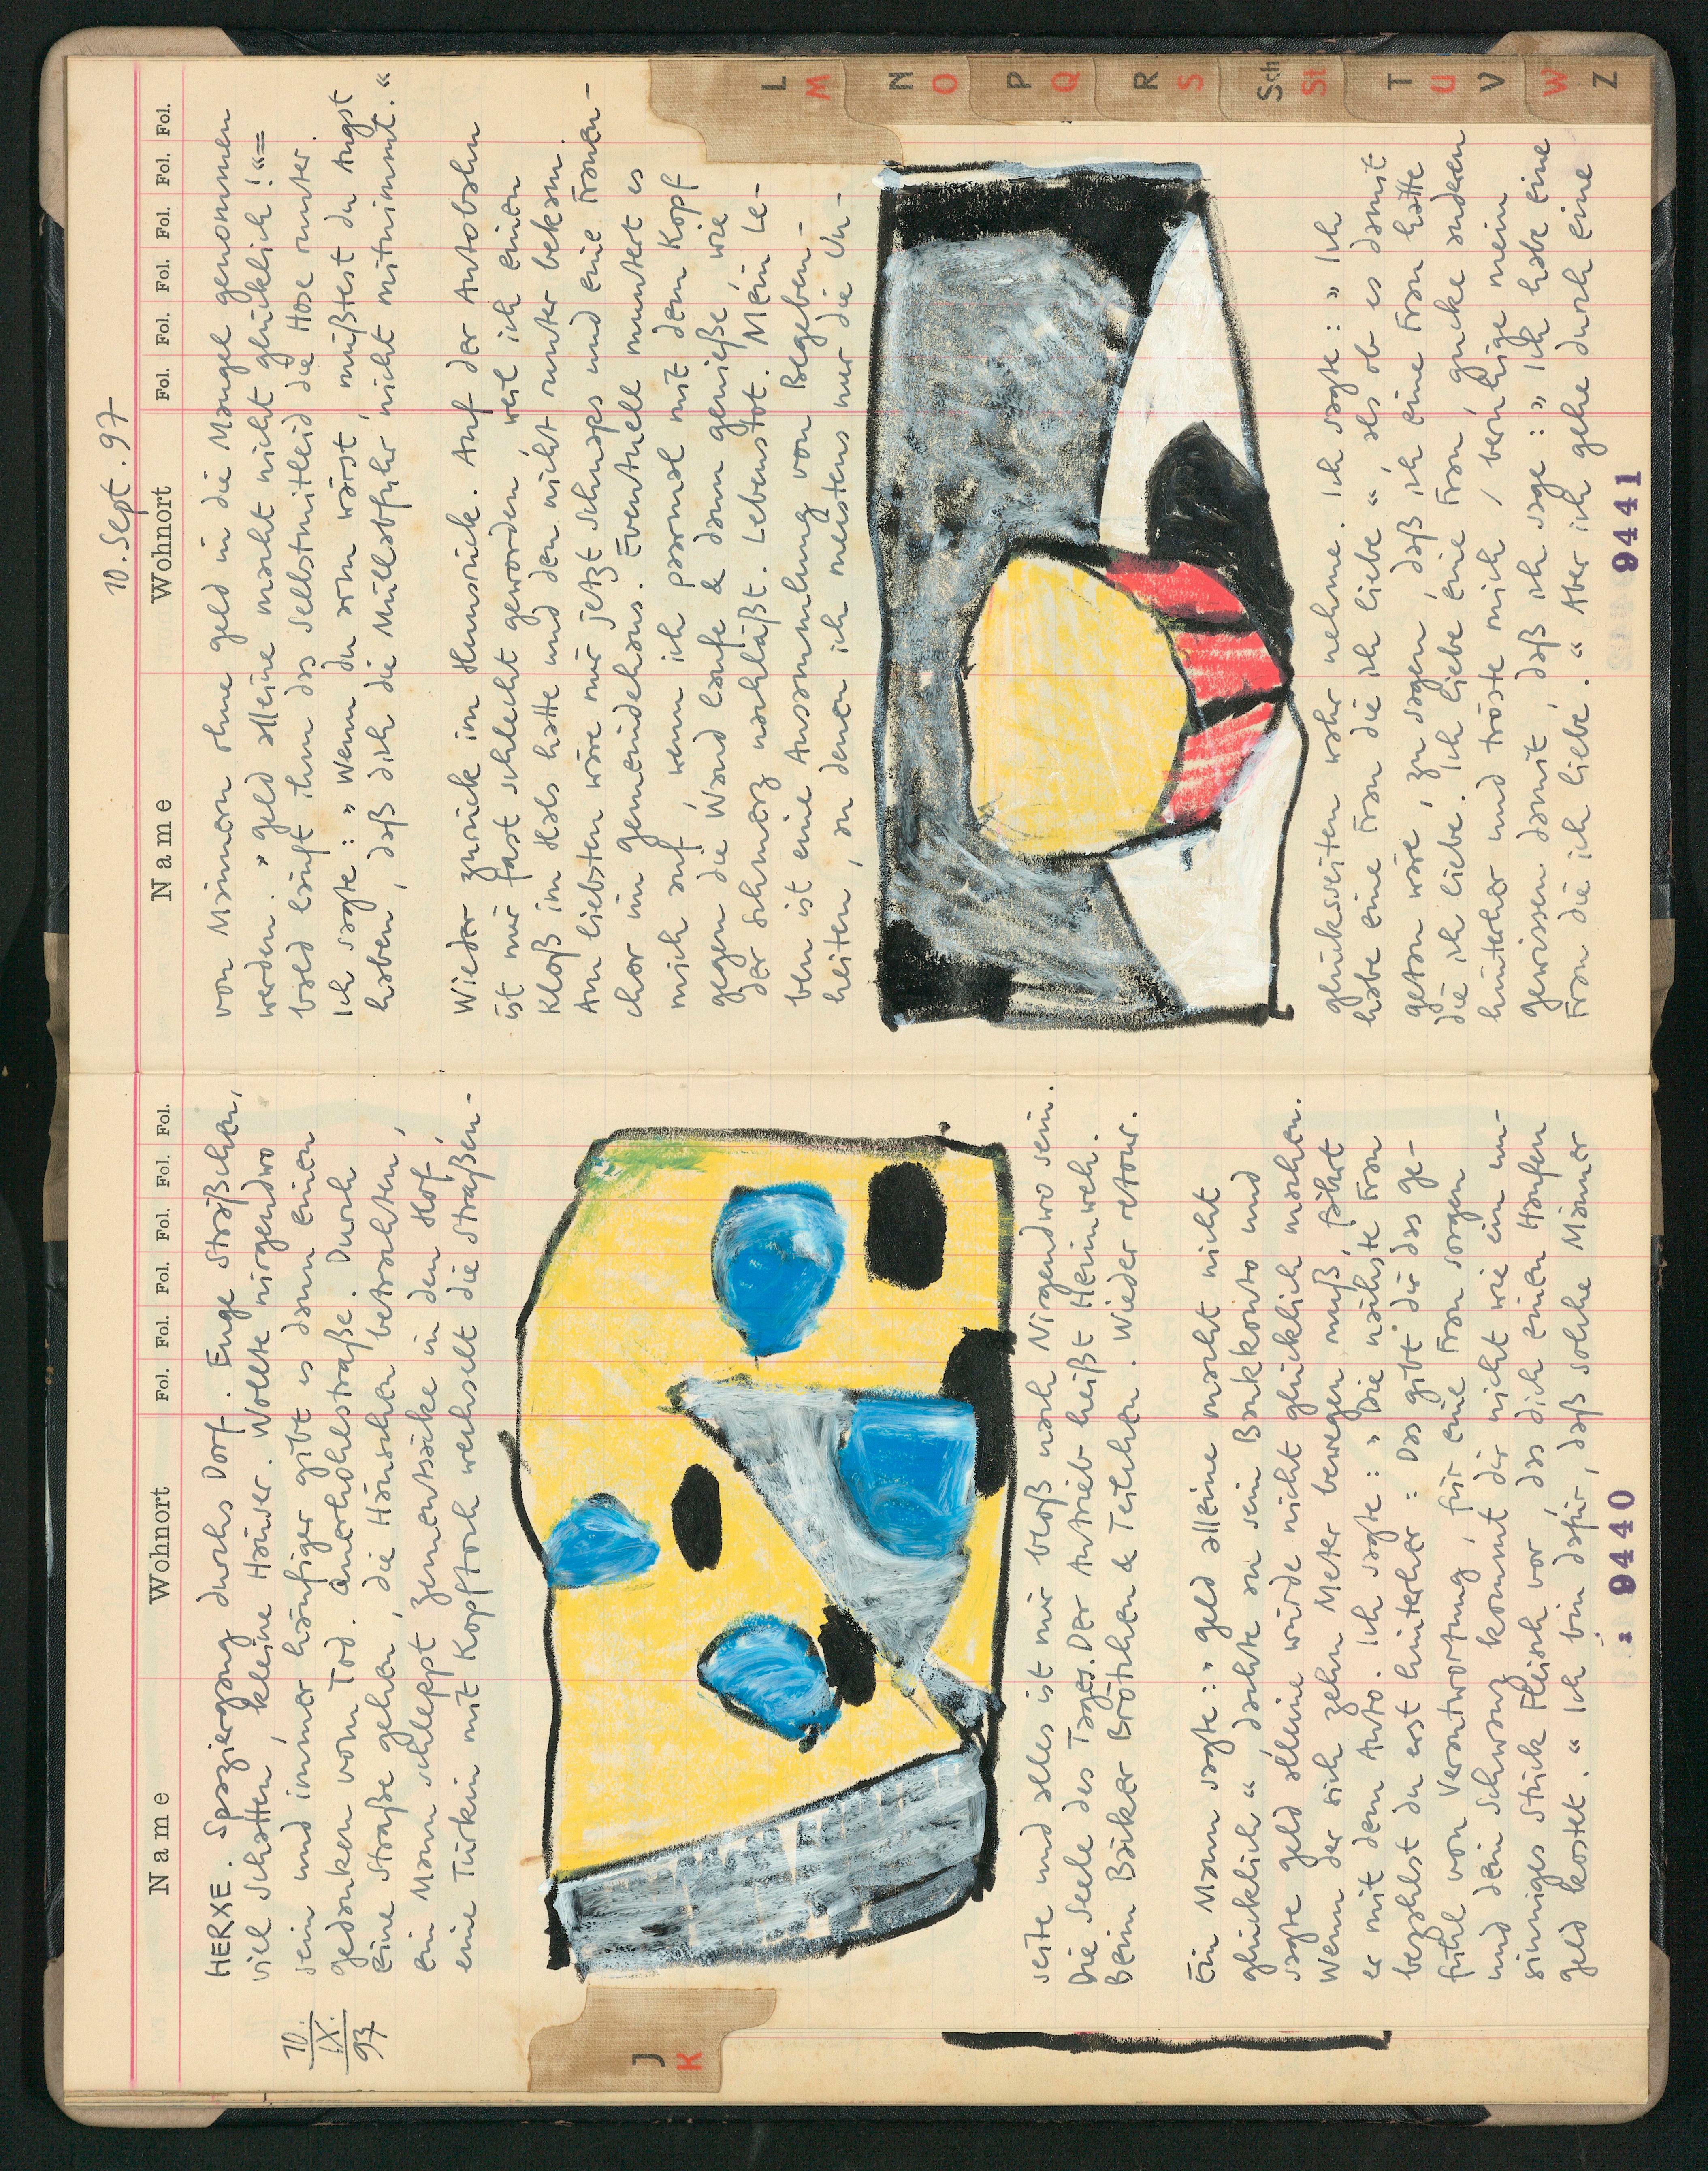 10. Sept. 97
Name Wohnort Fol. Fol. Fol. Fol. Fol. Fol.
10.
IX.
97
HERXE. Spaziergang durchs Dorf. Enge Sträßchen,
viel Schatten, kleine Häuser. Wollte nirgendwo
sein und immer häufiger gibt es dann einen
gedanken vom Tod. Amerhohlstraße. Durch
eine Straße gehen, die Häuschen betrachten,
ein Mann schleppt Zementsäcke in den Hof,
eine Türkin mit Kopftuch wechselt die Straßen-
seite und alles ist mir bloß nach Nirgendwo sein.
Die Seele des Tages. Der Antrieb heißt Heimweh.
Beim Bäcker Brötchen & Teilchen. Wieder retour.
Ein Mann sagte: » geld alleine macht nicht
glücklich «, dachte an sein Bankkonto und
sagte geld alleine würde nicht glücklich machen.
Wenn der sich zehn Meter bewegen muß, fährt
er mit dem Auto. Ich sagte: » Die nächste Frau
bezahlst du erst hinterher: Das gibt dir das ge-
fühl von Verantwortung, für eine Frau sorgen
und dein Schwanz kommt dir nicht wie ein un-
sinniges Stück Fleisch vor, das dich einen Haufen
geld kostet. « Ich bin dafür, daß solche Männer
9440
J
K
Name Wohnort Fol. Fol. Fol. Fol. Fol. Fol.
von Männern ohne geld in die Mangel genommen
werden. » geld alleine macht nicht glücklich! «=
bald läuft ihm das Selbstmitleid die Hose runter.
Ich sagte: » Wenn du arm wärst, müßtest du Angst
haben, daß dich die Müllabfuhr nicht mitnimmt. «
Wieder zurück im Hunsrück. Auf der Autobahn
ist mir fast schlecht geworden, weil ich einen
Kloß im Hals hatte und den nicht runter bekam.
Am liebsten wäre mir jetzt Schnaps und eine Frauen-
chor im gemeindehaus. Eventuell muntert es
mich auf, wenn ich paarmal mit dem Kopf
gegen die Wand laufe & dann genieße, wie
der Schmerz nachläßt. Lebenstot. Mein Le-
ben ist eine Ansammlung von Begeben-
heiten, an denen ich meistens nur die Un-
glücksseiten wahr nehme. Ich sagte: » Ich
habe eine Frau die ich liebe «, als ob es damit
getan wäre, zu sagen, daß ich eine Frau hätte
die ich liebe. Ich liebe eine Frau, gucke anderen
hinterher und tröste mich / beruhige mein
gewissen damit, daß ich sage: » Ich habe eine
Frau die ich liebe. « Aber ich gehe durch eine
9441
L
M
N
O
P
Q
R
S
Sch
St
T
U
V
W
Z